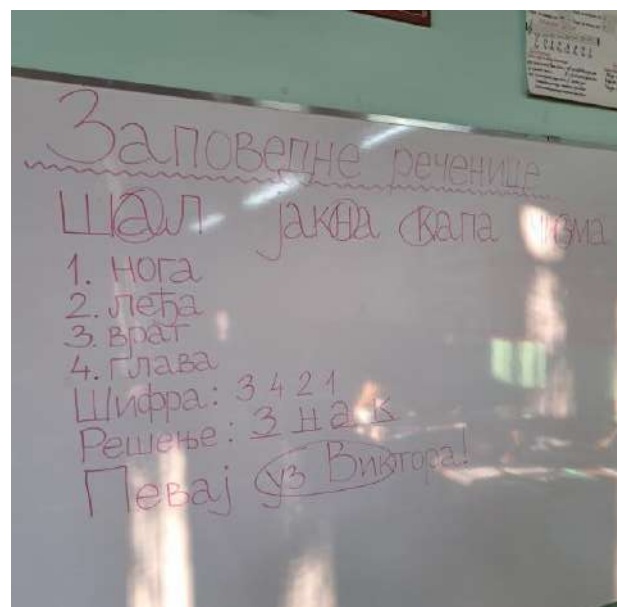 Заповедне реченице
шал јакна капа чизма
1. нога
2. леђа
3. врат
4. глава
Шифра: 3 4 2 1
Решење: З н а к
Певај уз Виктора!